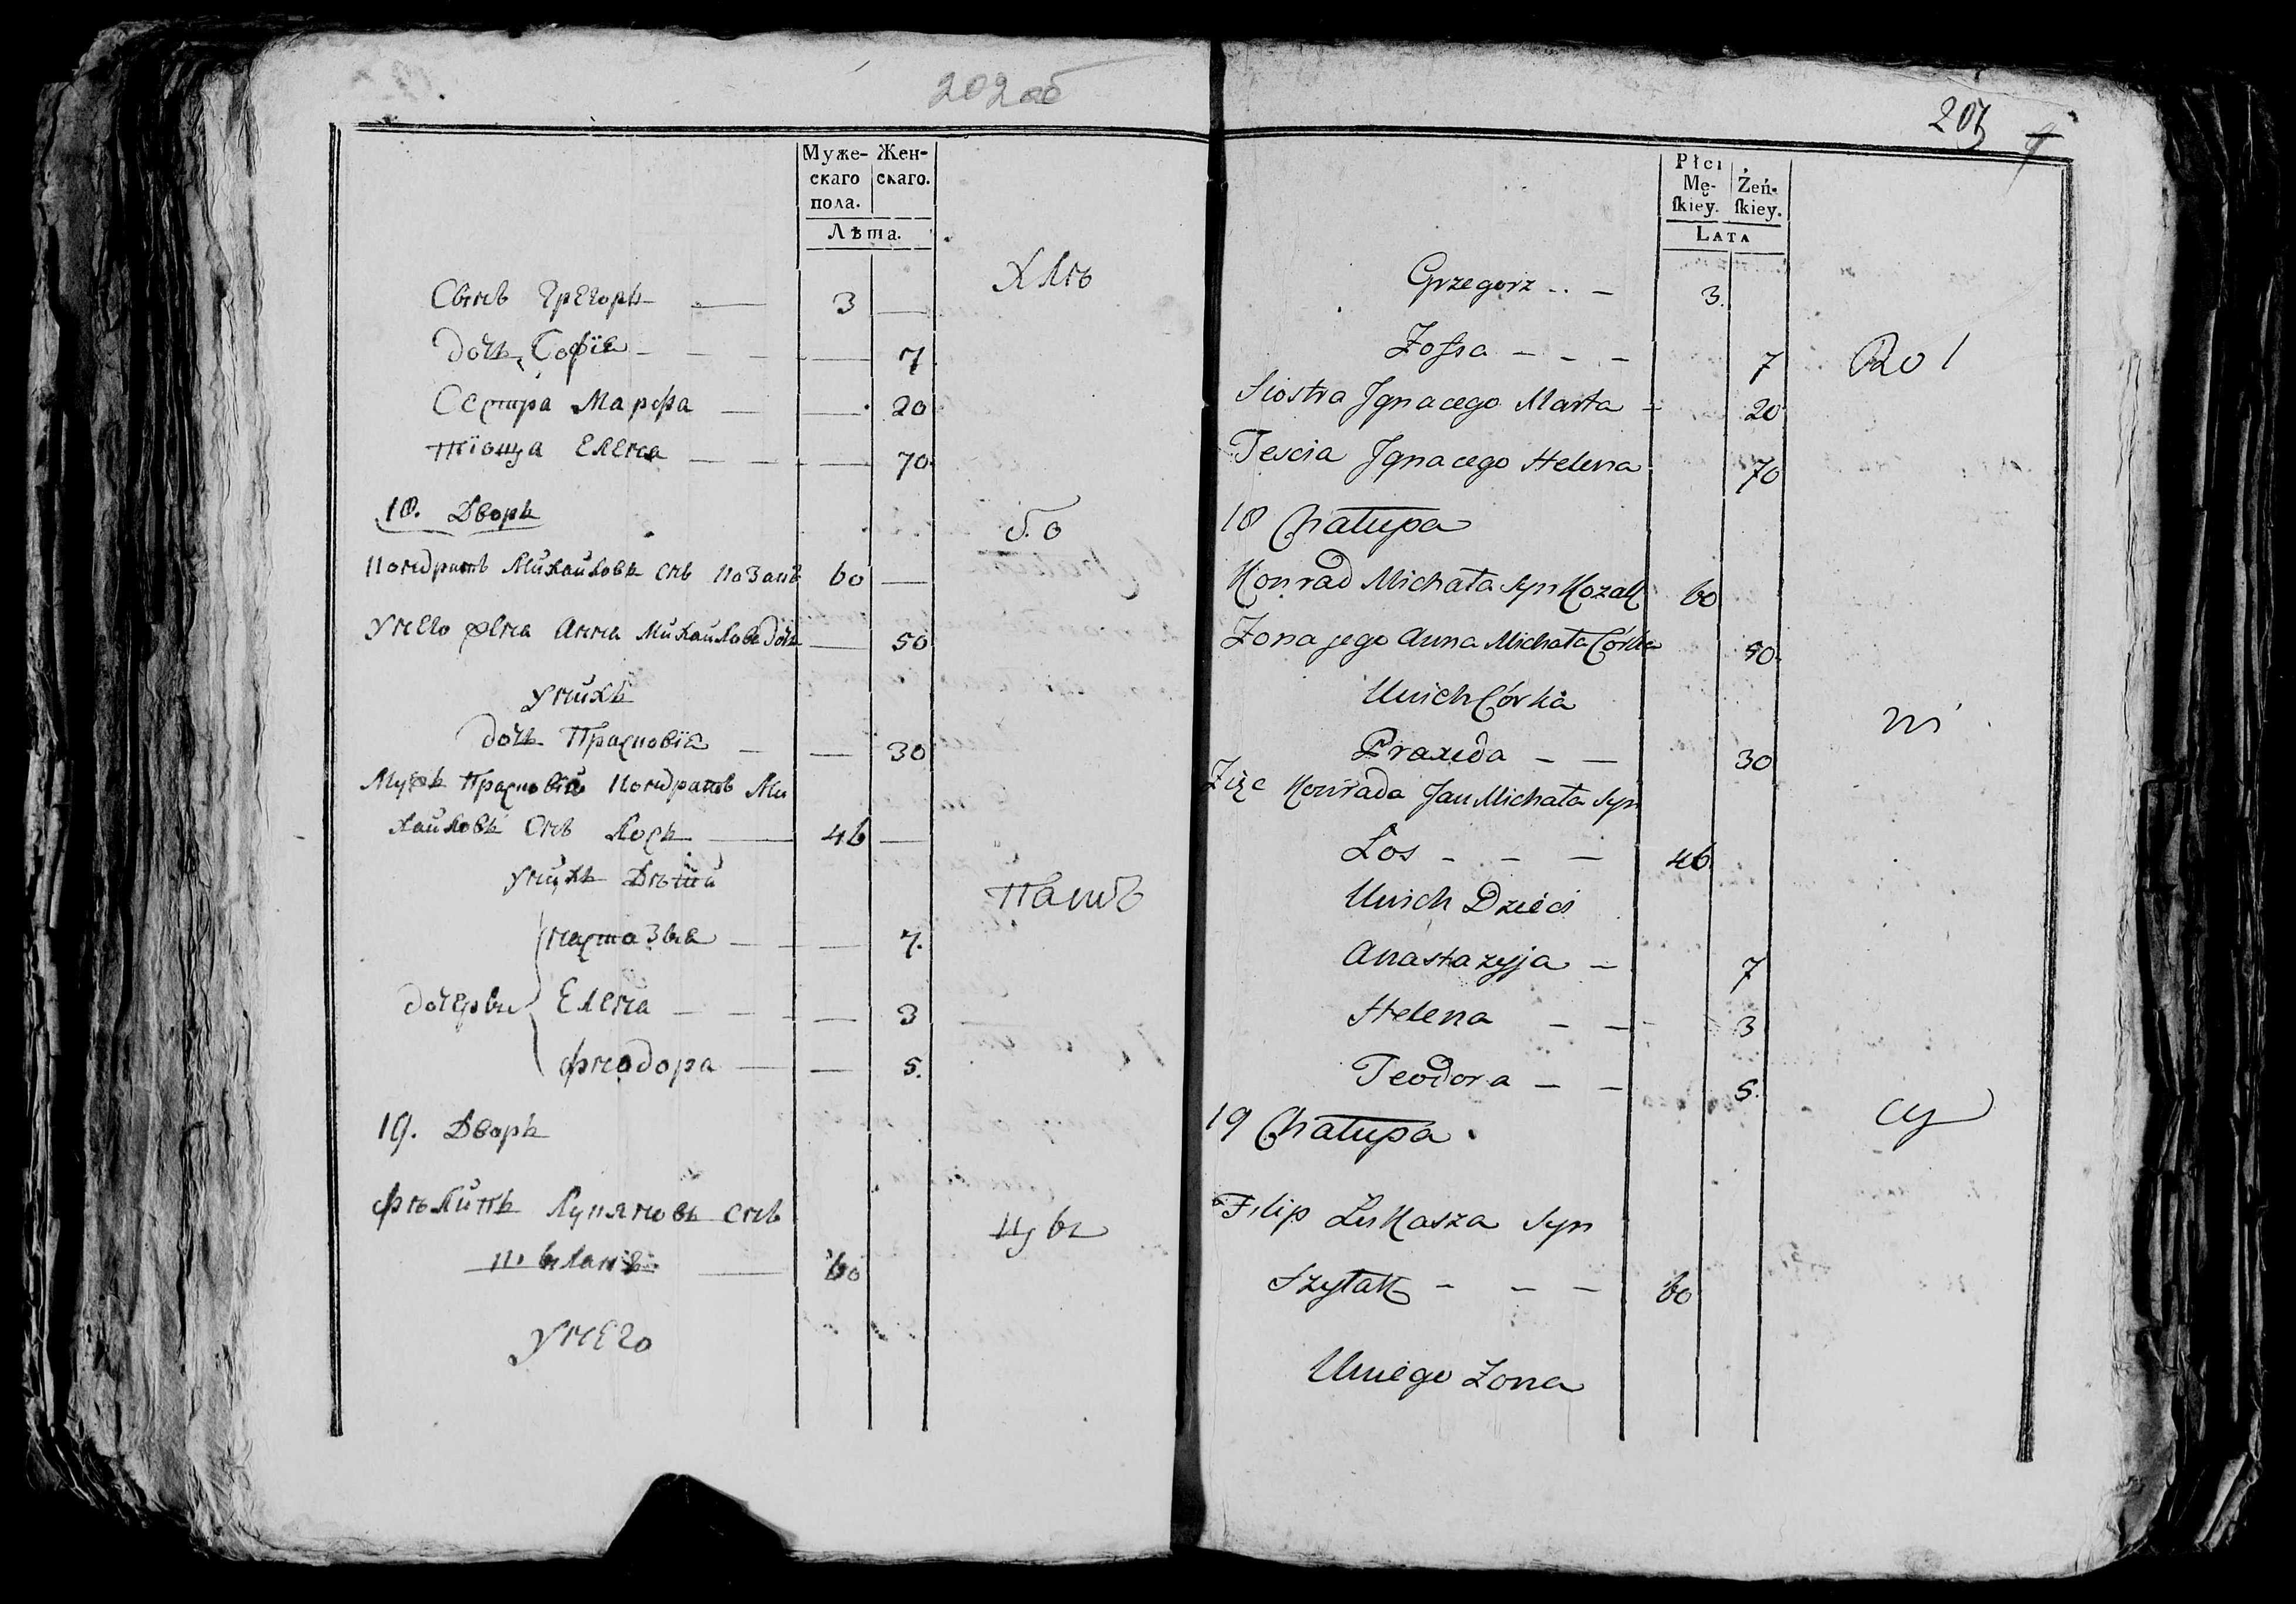 202об
Муже- Жен-
скаго скаго.
пола.
Лѣта.
Сынъ Грегоръ — 3 —
дочь Софія — — — 7
Сестра Марфа — — 20
тіоща Елена — — — 70
хлѣ
18. Дворъ
бо
Кондратъ Михайловъ снъ Козакъ 60 —
Унего жена Анна Михайлова дочь — 50
унихъ
дочь Прасковія — — 30
Мужъ Прасковіи Кондратъ Ми
хайловъ Снъ Лось — 46 —
унихъ Дѣтий
пашъ
настазыя — — 7.
дочеры Елена — — — 3
фѣодора — — 5.
19. Дворъ
фѣлипъ Лукяновъ снъ
цы
60
Унего
203
Płci
Mę- Żeń-
ſkiey. ſkiey.
LATA
Grzegorz - - 3.
Zofia - - - 7
Rol
Siostra Jgnacego Marta - 20
Tescia Jgnacego Helena 70
18 Chałupa
Konrad Michała Syn Kozak 60
Zona jego Anna Michała Córka 50.
Unich Córka
ni
Praxeda - - 30
Zięc Konrada Jan Michała Syn
Łos - - - 46
Unich Dzieci
Anastazyja - 7
Helena - - 3
Teodora - - 5.
19 Chałupa
cy
Filip Łukasza Syn
Szyłak - - - 60
Uniego Zona